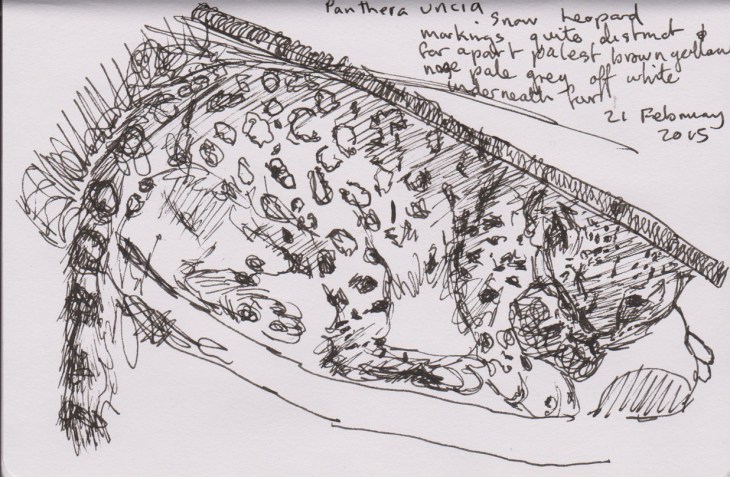 Panthera uncia
Snow leopard
markings quite distinct &
far apart palest brown yellow
nose pale grey off white
underneath fur
21 February
2015